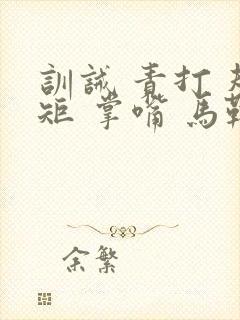 訓誡 責打 規
矩 掌嘴 馬鞭
余繁